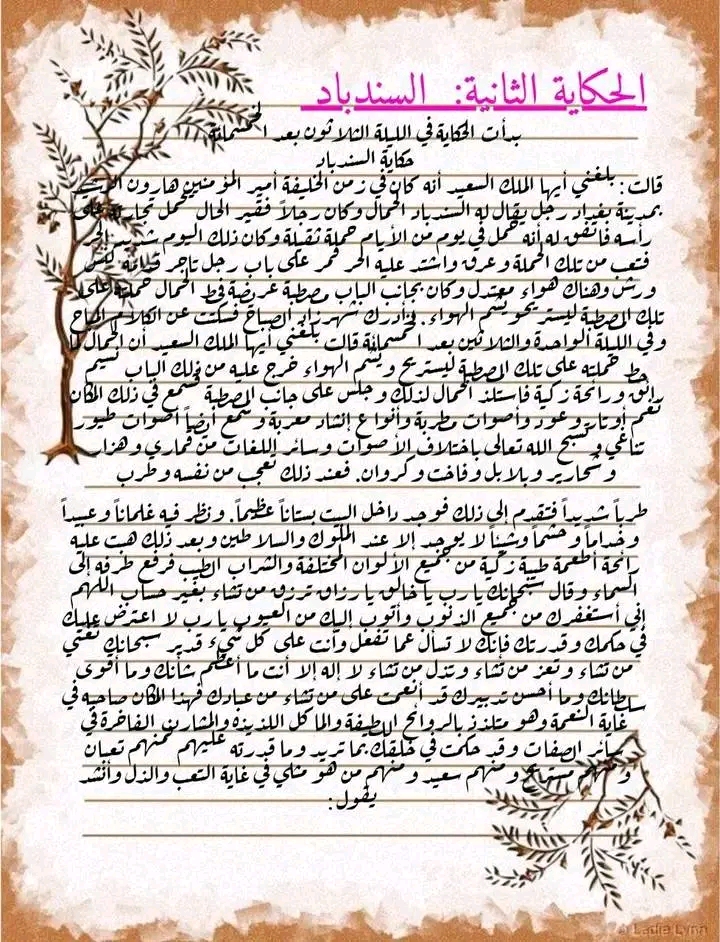 الحكاية الثانية: السندباد
بدأت الحكاية في الليلة الثلاثون بعد الخمسمائة
حكاية السندباد
قالت: بلغني أيها الملك السعيد أنه كان في زمن الخليفة أمير المؤمنين هارون الرشيد
بمدينة بغداد رجل يقال له السندباد الحمال وكان رجلاً فقير الحال يحمل تجارته على
رأسه فاتفق له أنه حمل في يوم من الأيام حملة ثقيلة وكان ذلك اليوم شديد الحر
فتعب من تلك الحملة وعرق واشتد عليه الحر فمر على باب رجل تاجر قدامه كنس
ورش وهناك هواء معتدل وكان بجانب الباب مصطبة عريضة فحط الحمال حملته على
تلك المصطبة ليستريح ويشم الهواء. وأدرك شهرزاد الصباح فسكتت عن الكلام المباح
وفي الليلة الواحدة والثلاثين بعد الخمسمائة قالت بلغني أيها الملك السعيد أن الحمال لما
حط حملته على تلك المصطبة ليستريح ويشم الهواء خرج عليه من ذلك الباب نسيم
رائق ورائحة زكية فاستلذ الحمال لذلك وجلس على جانب المصطبة فسمع في ذلك المكان
نغم أوتار وعود وأصوات مطربة وأنواع إنشاد معربة وسمع أيضاً أصوات طيور
تناغي وتسبح الله تعالى باختلاف الأصوات وسائر اللغات من قماري وهزار
وشحارير وبلابل وفاخت وكروان. فعند ذلك تعجب من نفسه وطرب
طرباً شديداً فتقدم إلى ذلك فوجد داخل البيت بستاناً عظيماً. ونظر فيه غلماناً وعبيداً
وخداماً وحشماً وشيئاً لا يوجد إلا عند الملوك والسلاطين وبعد ذلك هبت عليه
رائحة أطعمة طيبة زكية من جميع الألوان المختلفة والشراب الطيب فرفع طرفه إلى
السماء وقال سبحانك يا رب يا خالق يا رزاق ترزق من تشاء بغير حساب اللهم
إني أستغفرك من جميع الذنوب وأتوب إليك من العيوب يا رب لا اعترض عليك
في حكمك وقدرتك فإنك لا تسأل عما تفعل وأنت على كل شيء قدير سبحانك تغني
من تشاء وتعز من تشاء وتذل من تشاء لا إله إلا أنت ما أعظم شأنك وما أقوى
سلطانك وما أحسن تدبيرك قد أنعمت على من تشاء من عبادك فهذا المكان صاحبه في
غاية النعمة وهو متلذذ بالروائح اللطيفة والمآكل اللذيذة والمشارب الفاخرة في
سائر الصفات وقد حكمت في خلقك بما تريد وما قدرته عليهم فمنهم تعبان
ومنهم مستريح ومنهم سعيد ومنهم من هو مثلي في غاية التعب والذل وأنشد
يقول:
© Ladie Lynn